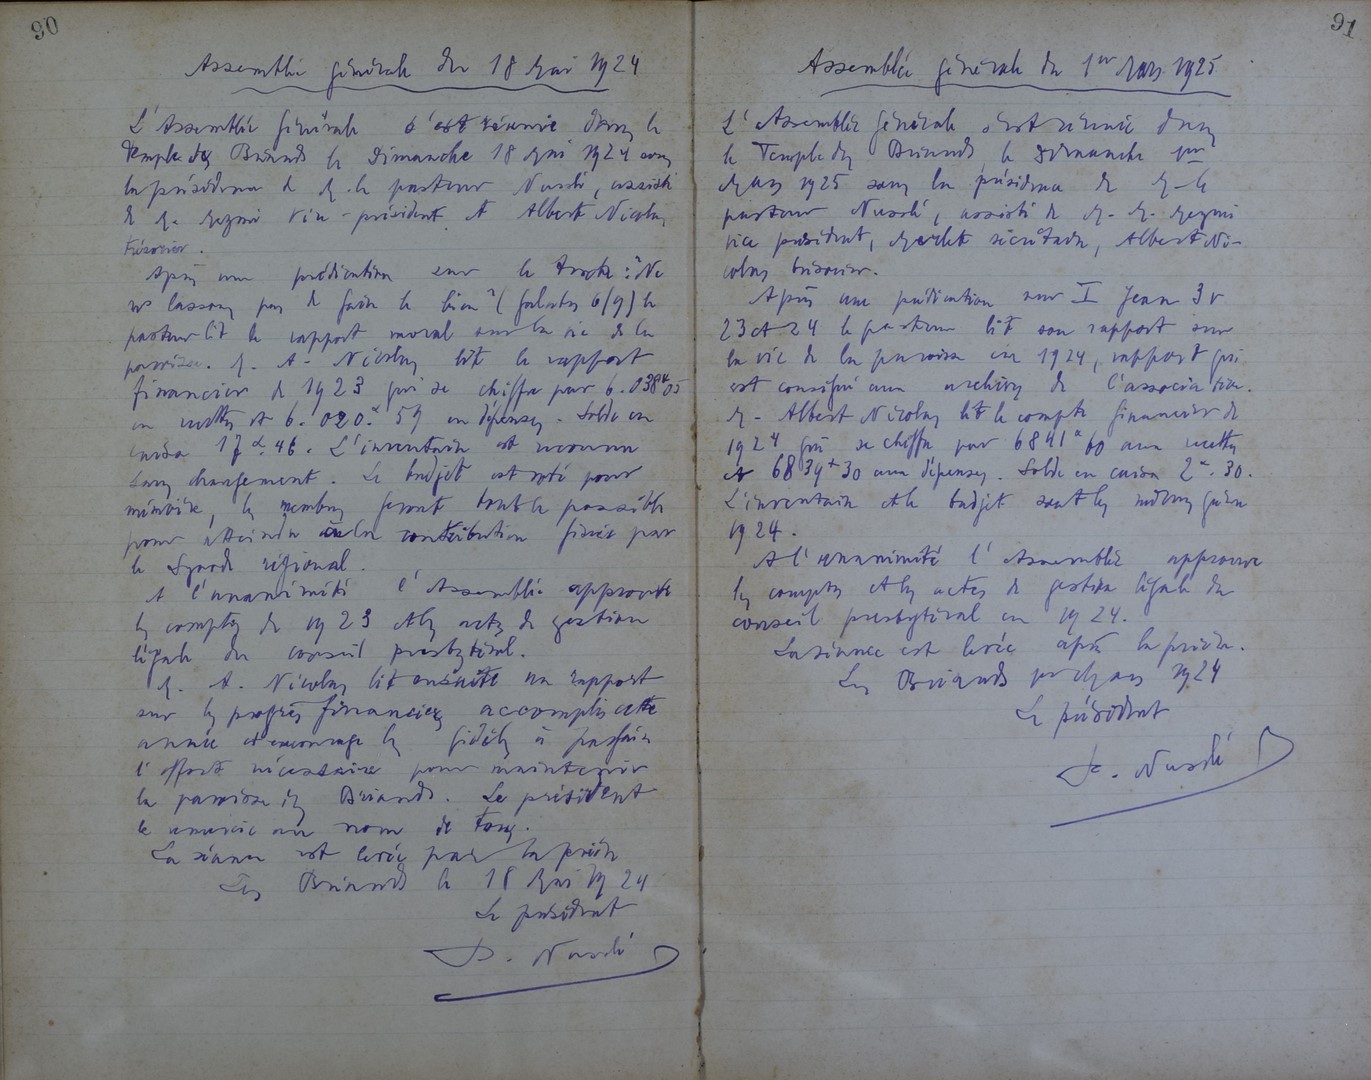 90
Assemblée générale du 18 Mai 1924
L'Assemblée Générale s'est réunie dans le
Temple des Briands le Dimanche 18 Mai 1924 sous
la présidence de M. le pasteur Nusslé, assisté
de M. Meyni vice-président et Albert Nicolas
trésorier.
Après une prédication sur le texte : "Ne
ns lassons pas de faire le bien" (Galates 6/9) le
pasteur lit le rapport moral sur la vie de la
paroisse. M. A. Nicolas lit le rapport
financier de 1923 qui se chiffre par 6.038 05
en recettes et 6.020. 59 en dépenses. Solde en
caisse 17 46. L'inventaire est reconnu
sans changement. Le budget est voté pour
mémoire, les membres feront tout le possible
pour atteindre la contribution fixée par
le Synode régional.
A l'unanimité l'Assemblée approuve
les comptes de 1923 et les actes de gestion
légale du conseil presbytéral.
M. A. Nicolas lit ensuite un rapport
sur les progrès financiers accomplis cette
année et encourage les fidèles à parfaire
l'effort nécessaire pour maintenir
la paroisse des Briands. Le président
le remercie au nom de tous.
La séance est levée par la prière
Les Briands le 18 Mai 1924
Le président
Nusslé
91
Assemblée générale du 1er Mars 1925
L'Assemblée générale s'est réunie dans
le Temple des Briands, le Dimanche 1er
Mars 1925 sous la présidence de M. le
pasteur Nusslé, assisté de M. M. Meyni
vice président, secrétaire, Albert Ni-
colas trésorier.
Après une prédication sur I Jean 3 v
23 et 24 le pasteur lit son rapport sur
la vie de la paroisse en 1924, rapport qui
est consigné aux archives de l'association.
M. Albert Nicolas lit le compte financier de
1924 qui se chiffre par 6841 60 aux recettes
et 6839 30 aux dépenses. Solde en caisse 2 . 30.
L'inventaire et le budget sont les mêmes qu'en
1924.
A l'unanimité l'Assemblée approuve
les comptes et les actes de gestion légale du
conseil presbytéral en 1924.
La séance est levée après la prière.
Les Briands 1er Mars 1924
Le président
Nusslé